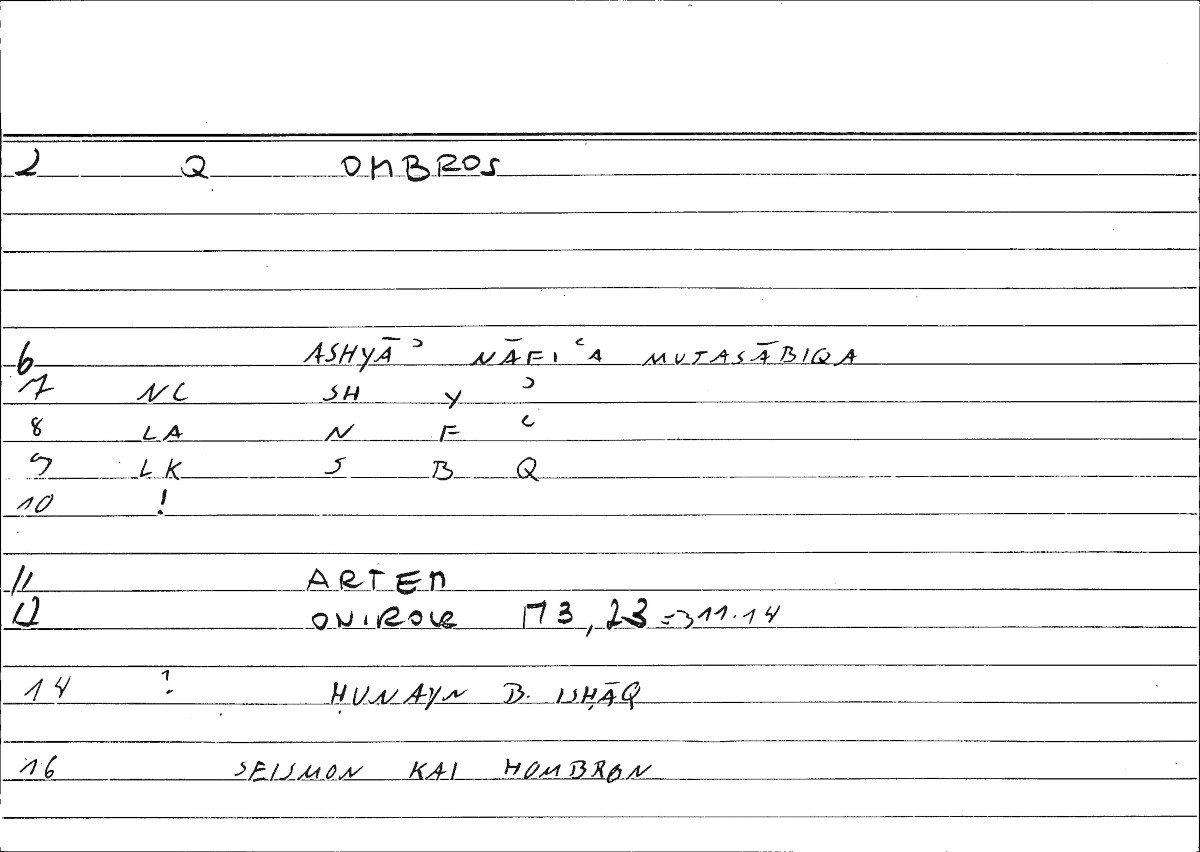 2 Q OMBROS
6 ASHYĀʾ NĀFIʿA MUTASĀBIQA
7 NC SH Y ʾ
8 LA N F ʿ
9 LK S B Q
10 !
11 ARTEM
12 ONIROCR 173,23 = 311.14
14 ? ḤUNAYN B. ISḤĀQ
16 SEISMON KAI HOMBRON